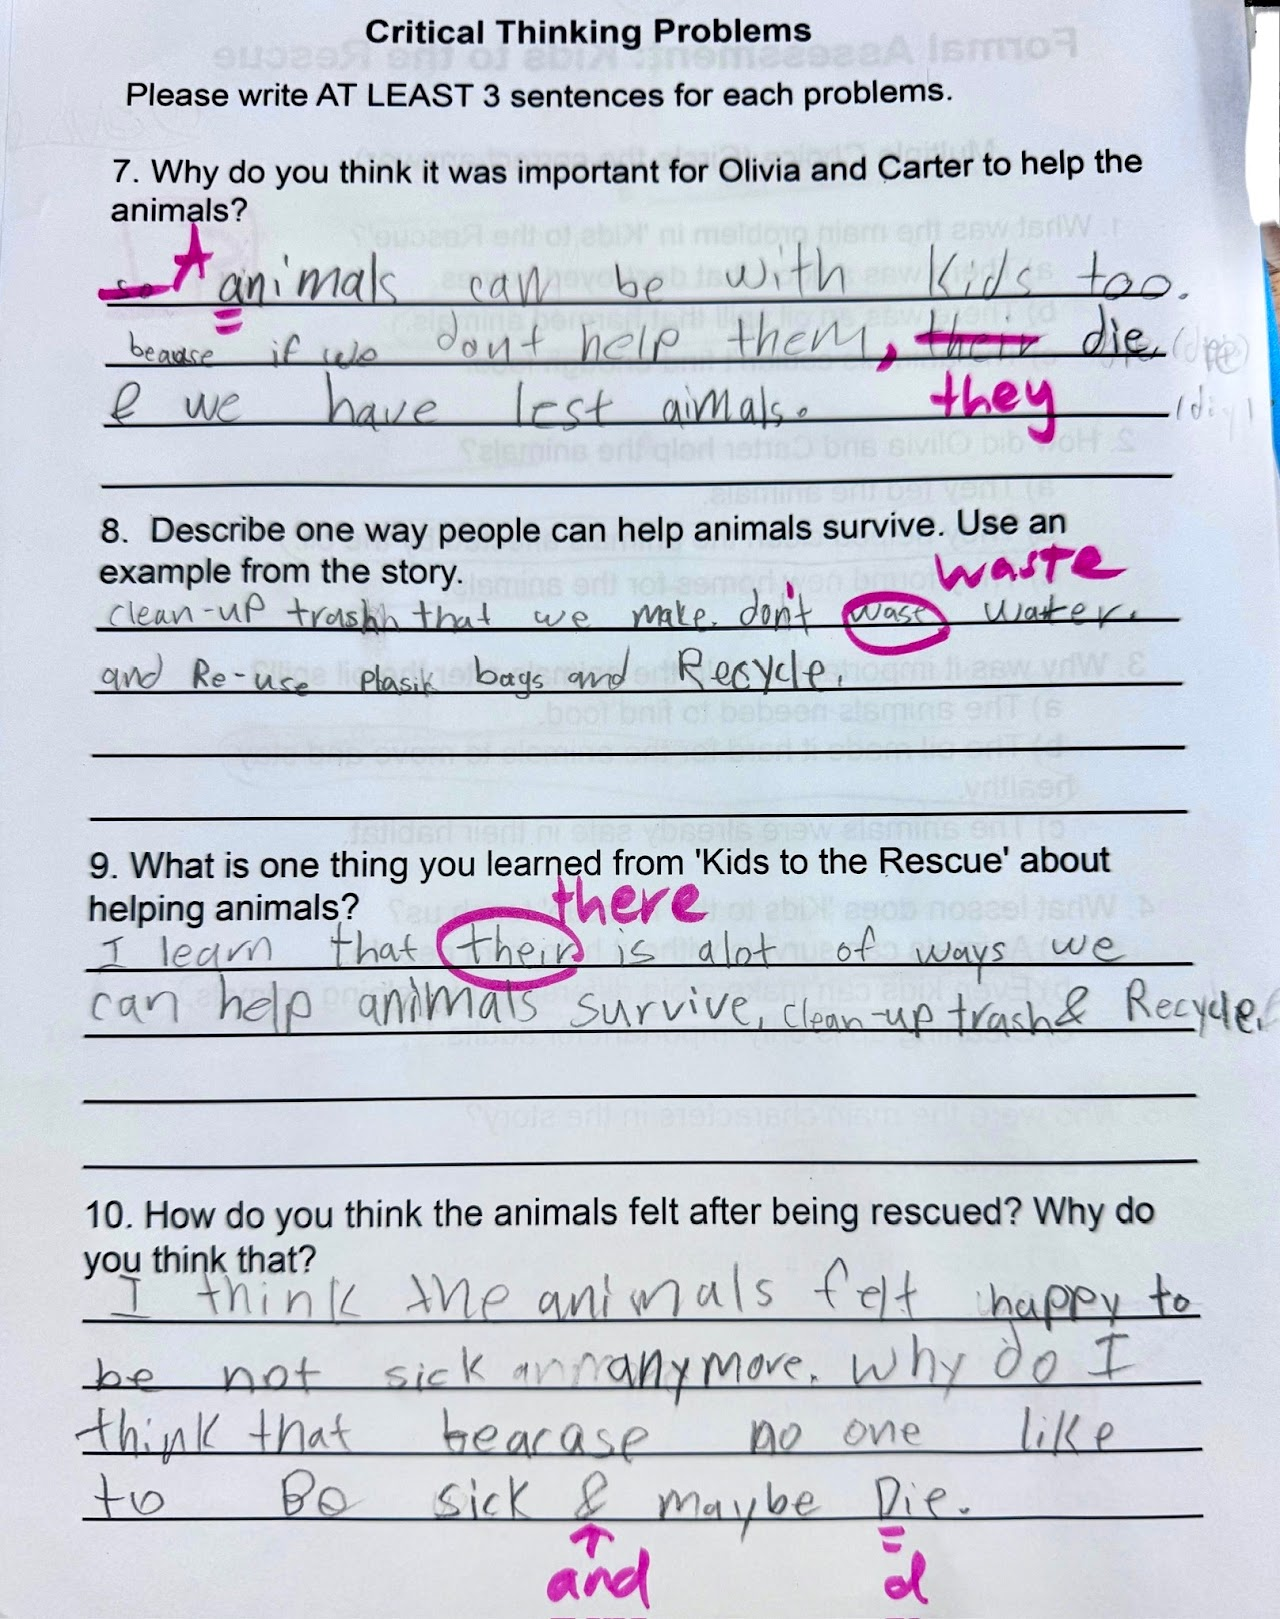 Critical Thinking Problems
Please write AT LEAST 3 sentences for each problems.
7. Why do you think it was important for Olivia and Carter to help the
animals?
so A animals can be with kids too.
beause if we dont help them, their die.
& we have lest aimals. they
8. Describe one way people can help animals survive. Use an
example from the story.
waste
clean-up trashh that we make. don't wase water.
and Re-use plasik bags and Recycle.
9. What is one thing you learned from 'Kids to the Rescue' about
helping animals?
there
I learn that their is alot of ways we
can help animals survive, clean-up trash & Recycle.
10. How do you think the animals felt after being rescued? Why do
you think that?
I think the animals felt happy to
be not sick anymore. why do I
think that bearcase no one like
to Be sick & maybe Die.
and d